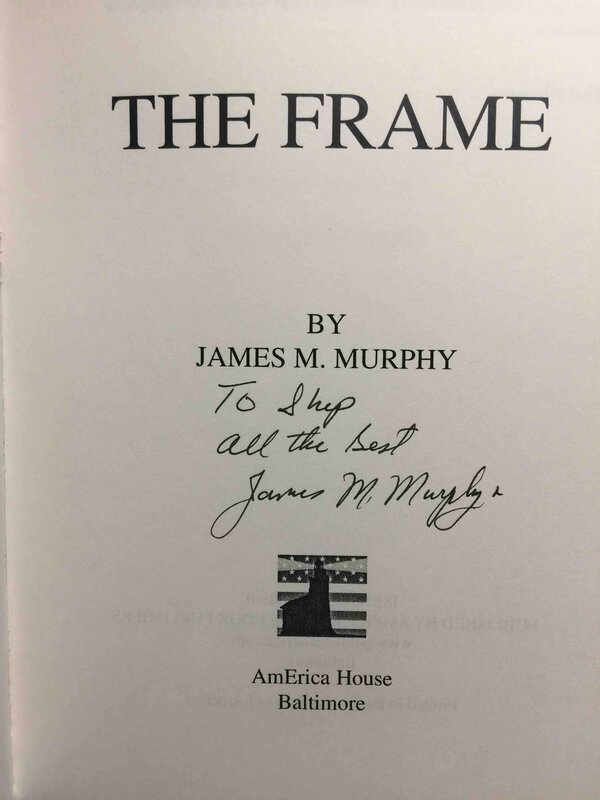 THE FRAME
BY
JAMES M. MURPHY
To Shep
All the Best
James M. Murphy
AmErica House
Baltimore